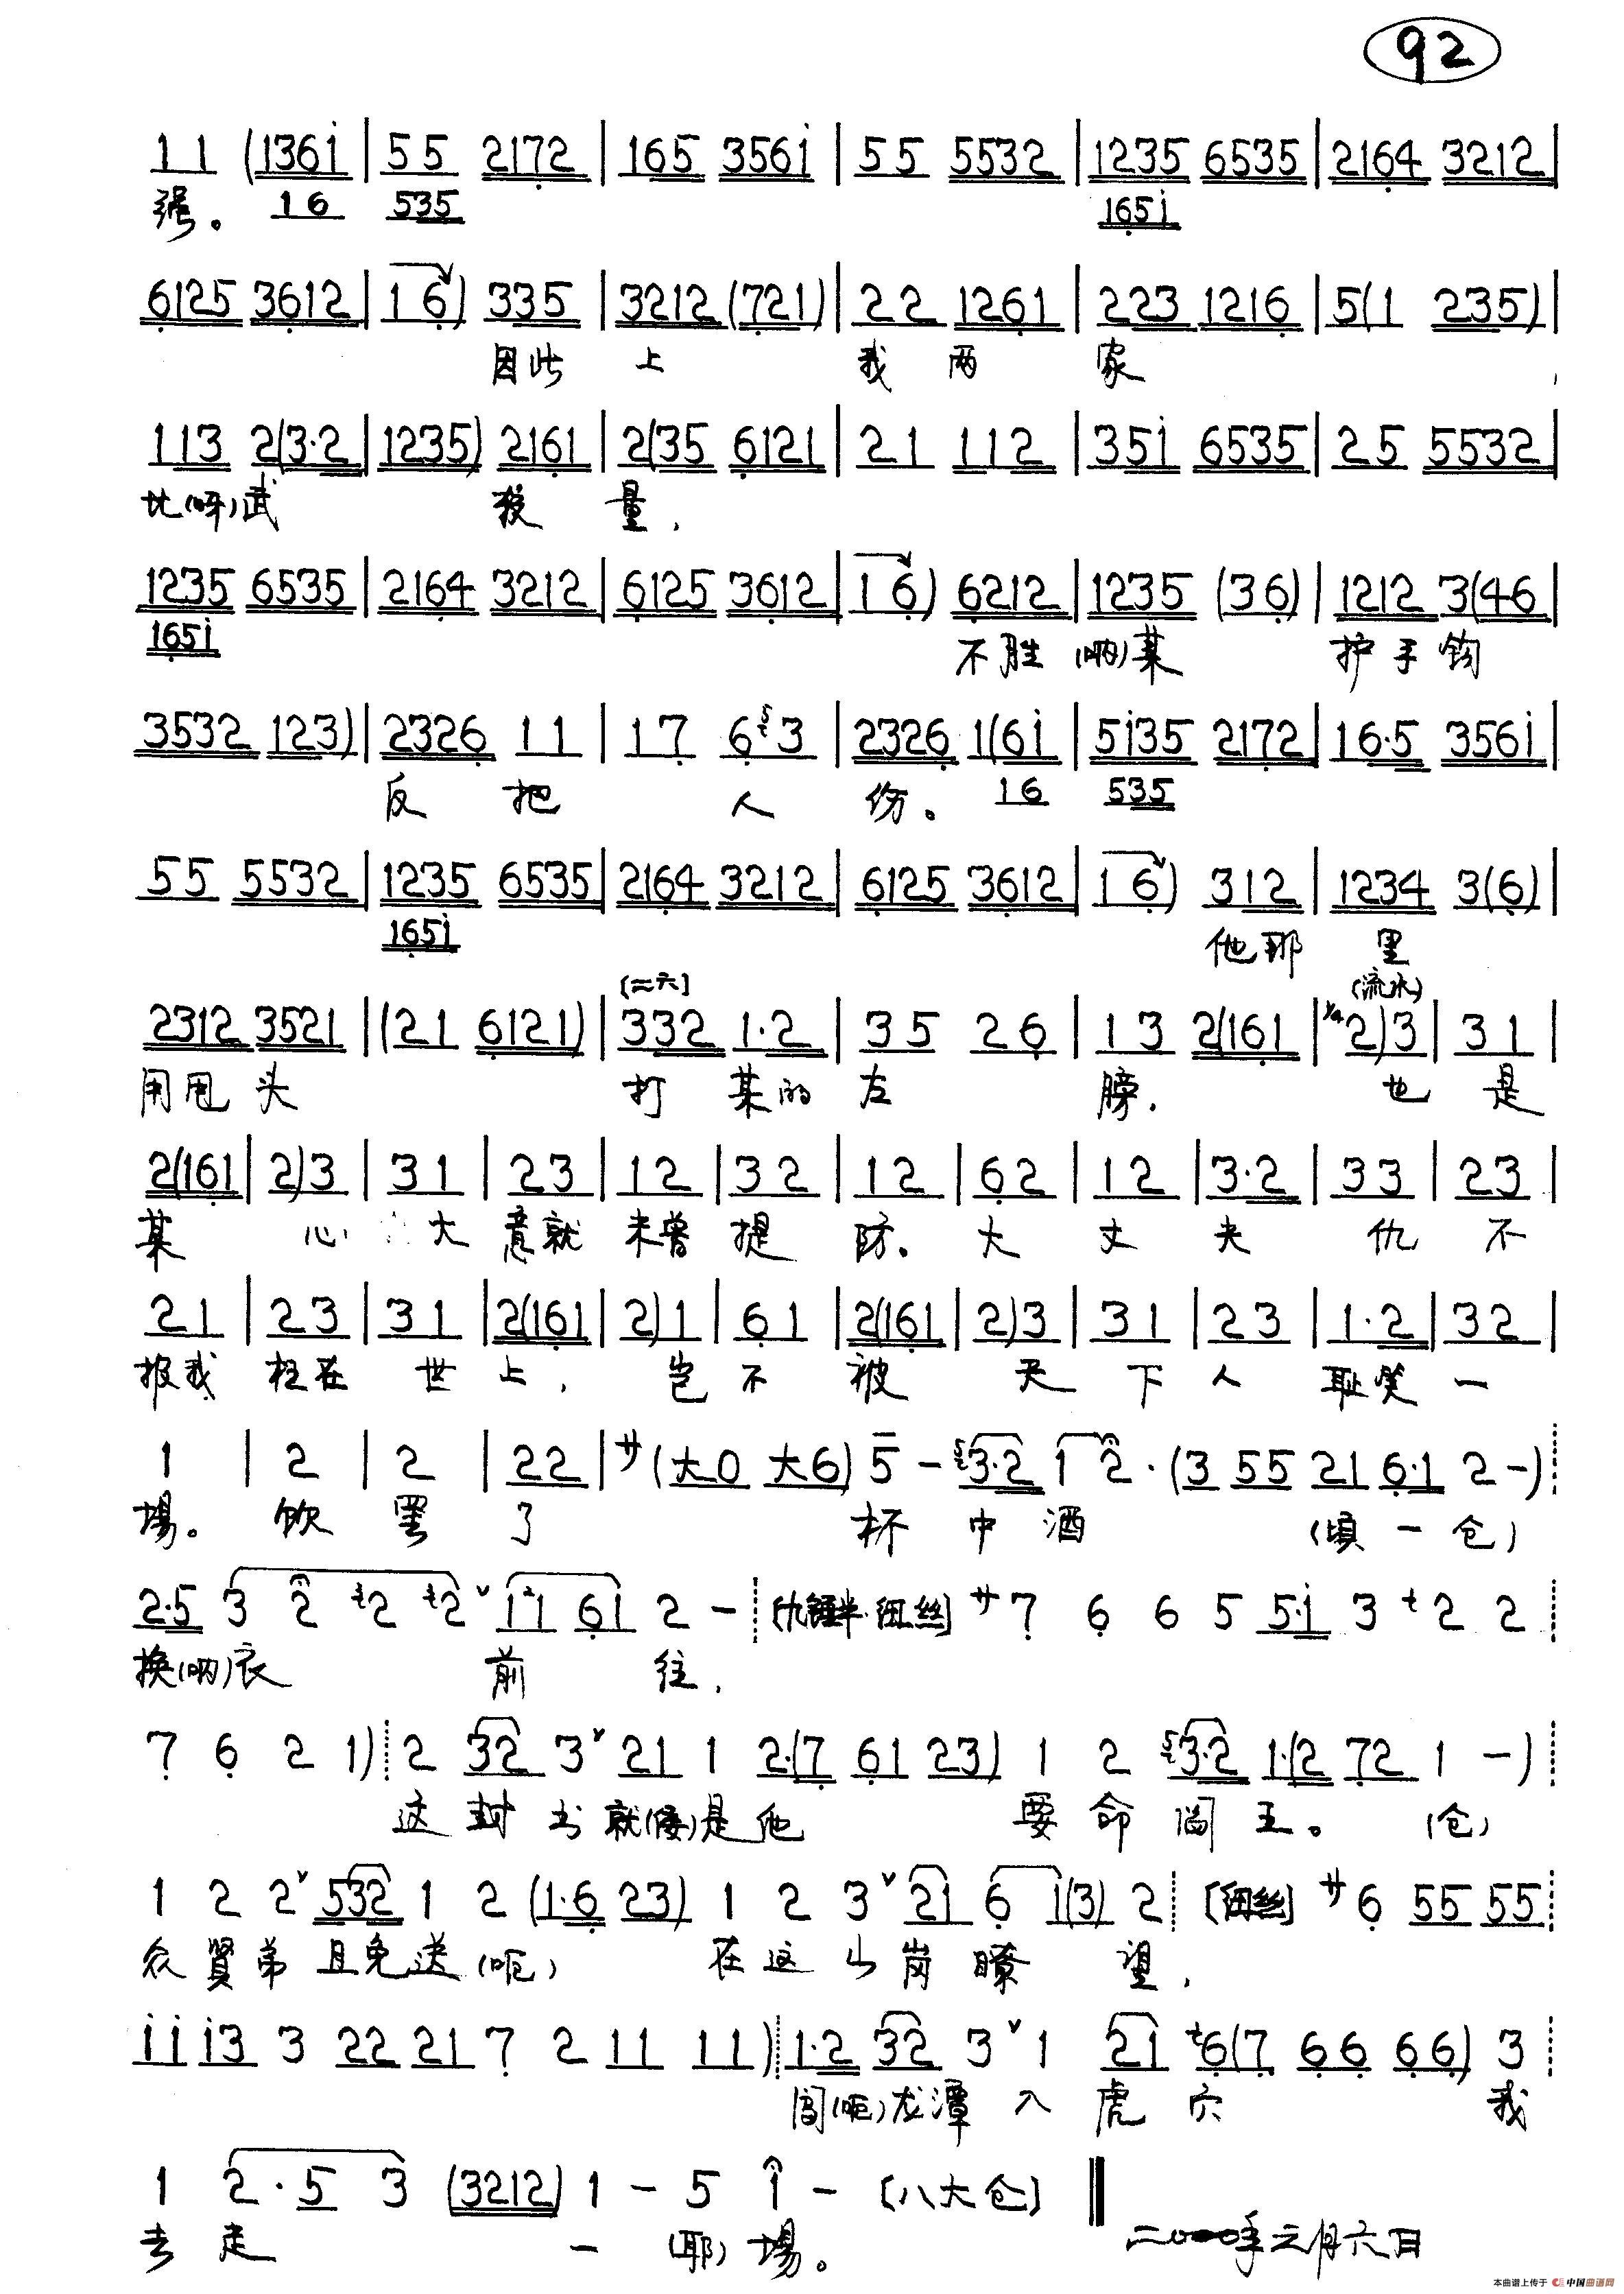 92
1 1 (1361̇ | 5 5 2172 | 165 3561̇ | 5 5 5532 | 1235 6535 | 2164 3212 |
强。 16 535 1651̇
6125 3612 | 1 6) 335 | 3212 (721) | 2 2 1261 | 223 1216 | 5(1 235) |
因此 上 我 两 家
113 2(3·2 | 1235) 2161 | 2(35 6121 | 2 1 112 | 351̇ 6535 | 25 5532 |
比(呀)武 较 量,
1235 6535 | 2164 3212 | 6125 3612 | 1 6) 6212 | 1235 (36) | 1212 3(46 |
1651̇ 不胜 (呐)某 护手钩
3532 123) | 2326 11 | 17 6⁵3 | 2326 1(61̇ | 51̇35 2172 | 16·5 3561̇ |
反 把 人 伤。 16 535
55 5532 | 1235 6535 | 2164 3212 | 6125 3612 | 1 6) 312 | 1234 3(6) |
1651̇ 他那 里
[二六] (流水)
2312 3521 | (21 6121) | 332 1·2 | 35 26 | 13 2(161 | ¼2)3 | 31 |
用甩头 打 某的 左 膀. 也 是
2(161 | 2)3 | 31 | 23 | 12 | 32 | 12 | 62 | 12 | 3·2 | 33 | 23 |
某 心 大 意就 未曾 提 防。大 丈 夫 仇 不
21 | 23 | 31 | 2(161 | 2)1 | 61 | 2(161 | 2)3 | 31 | 23 | 1·2 | 32 |
报我 枉在 世 上, 岂 不 被 天 下 人 耻笑 一
1 | 2 | 2 | 22 | サ(大0 大6) 5 - ⁵3·2 1 2·(3 55 21 6·1 2 -)
場。 饮 罢 了 杯 中 酒 (顷 一 仓)
2·5 3 2 2 2 ˇ 11 61 2 - [九锤半·纽丝] サ7 6 6 5 5·1̇ 3 2 2
换(呐)衣 前 往,
7 6 2 1) 2 32 3ˇ 21 1 2·(7 61 23) 1 2 ⁵3·2 1·(2 72 1 -)
这 封 书 就(倭)是他 要 命 阎 王。 (仓)
1 2 2ˇ 532 1 2 (1·6 23) 1 2 3ˇ 21 6 1(3) 2 [纽丝] サ6 55 55
众 賢 弟 且免 送 (呃) 在 这 山 岗 瞭 望,
1̇1̇ 1̇3 3 22 21 7 2 11 11) 1·2 32 3ˇ 1 21 6(7 66 66) 3
闯(呃)龙潭 入 虎 穴 我
1 2·5 3 (3212) 1 - 5 1 - [八大仓]
去 走 一 (耶) 場。
二000年三月六日
本曲谱上传于 中国曲谱网